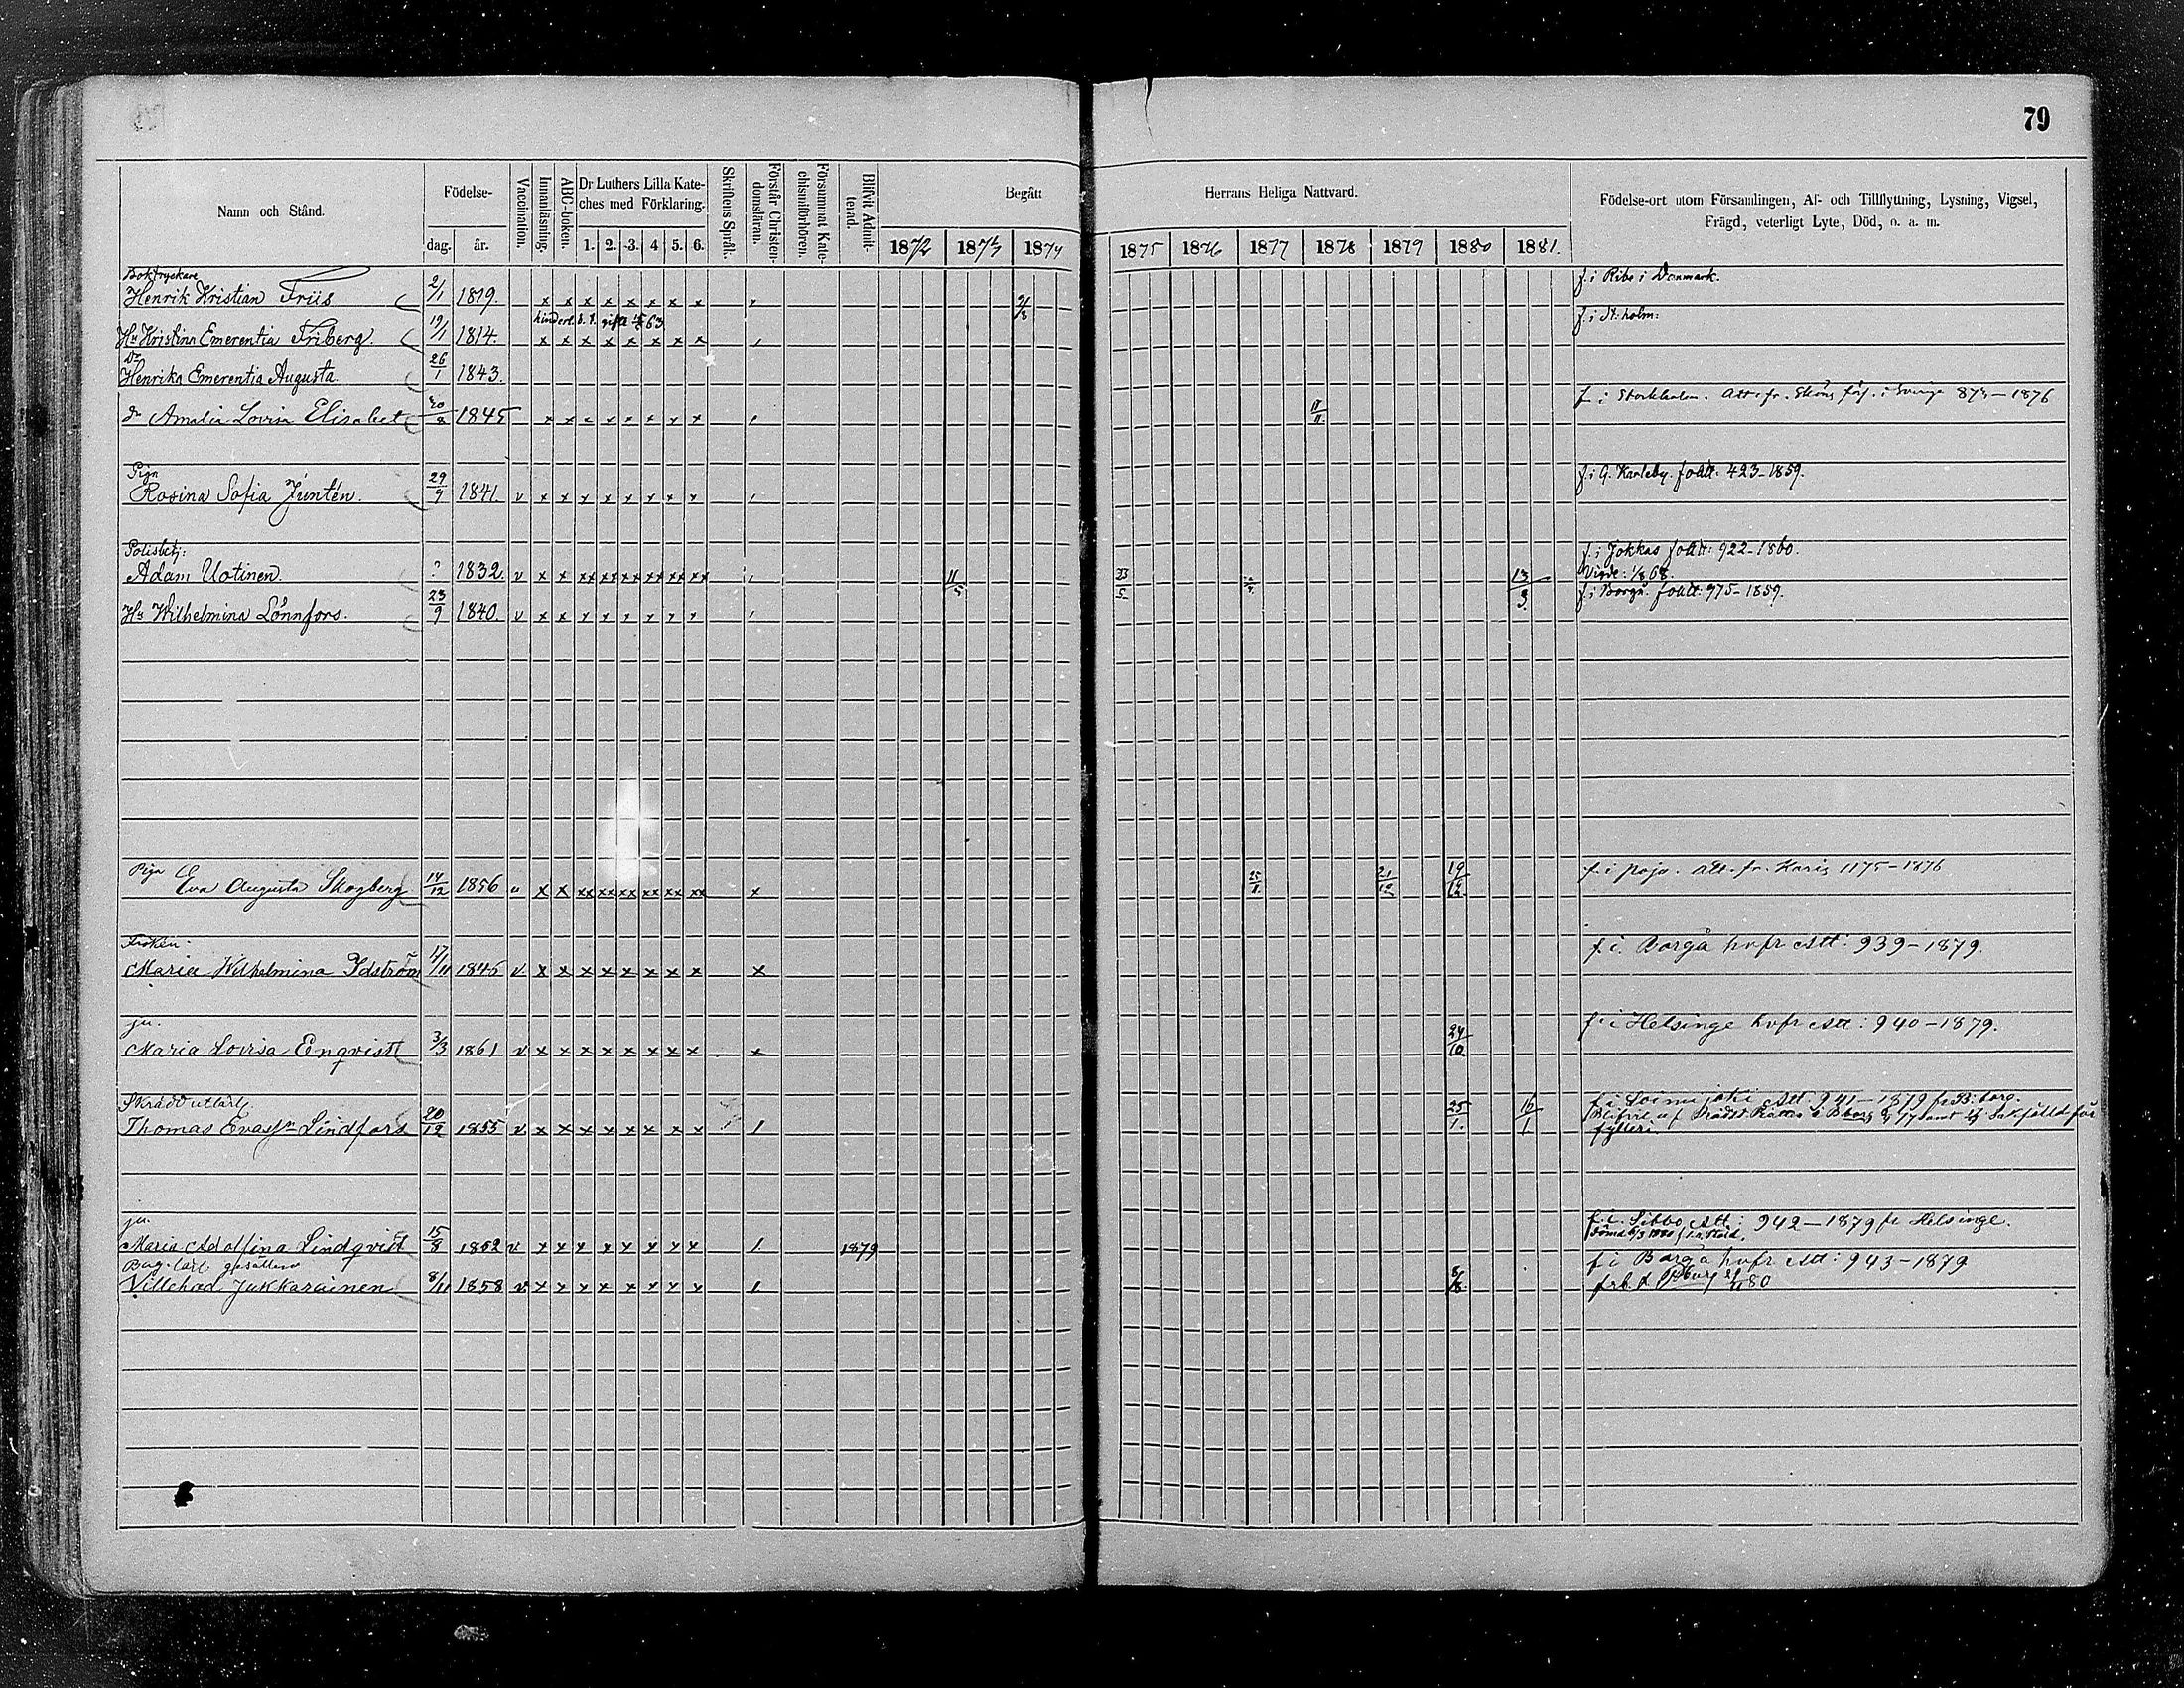 79
Namn och Stånd.
Födelse-
dag.
år.
Vaccination.
Innanläsning.
ABC-boken.
Dr Luthers Lilla Kate-
ches med Förklaring.
1. 2. 3. 4 5. 6.
Skriftens Språk.
Förstår Christen-
domsläran.
Försummat Kate-
chismiförhören.
Blifvit Admit-
terad.
Begått
Herrans Heliga Nattvard.
1872 1873 1874 1875 1876 1877 1878 1879 1880 1881.
Födelse-ort utom Församlingen, Af- och Tillflyttning, Lysning, Vigsel,
Frägd, veterligt Lyte, Död, o. a. m.
Boktryckare
Henrik Kristian Friis 2/1 1819. x x x x x x x x 9/8 f. i Ribe i Danmark.
hinderl. b. t. gifta 63
Hu Kristina Emerentia Friberg. 19/1 1814. x x x x x x x x f. i St. holm:
Dr
Henrika Emerentia Augusta 26/1 1843.
dr Amalia Lovisa Elisabet 1845 x x x x x x x x f. i Stockholm. Att. fr. i Sverige 873-1876
Piga
Rosina Sofia Juntén. 29/9 1841. v x x x x x x x x f. i G. Karleby. 423-1859.
Polisbetj:
Adam Uotinen. ? 1832. v x x xx xx xx xx xx xx 11/5 23/5 13/3 f. i Jokkas 922-1860.
68.
Hu Wilhelmina Lönnfors. 23/9 1840. v x x x x x x x x f. i Borgå. 975-1859.
Piga Eva Augusta Skogberg 14/12 1856 v x x xx xx xx xx xx xx x 25/11 21/12 19/12 f. i Pojo. att. fr. Karis 1175-1876
Fröken
Maria Wilhelmina Idström 17/11 1845 v x x x x x x x x x f. i. Borgå hvfr Att: 939-1879.
pu.
Maria Lovisa Enqvist 3/3 1861 v x x x x x x x x x 24/10 f. i Helsinge hvfr Att: 940-1879.
Skrädd utlärl.
Thomas Evasson Lindfors 20/12 1855 v x x x x x x x x 25/1. 16/1 f. i Att. 941-1879 fr
Blifvit af samt Sakfälld för
fylleri.
pu.
Maria Adolfina Lindqvist 15/8 1852 v x x x x x x x x 1879 f. i. Sibbo Att: 942-1879 fr Helsinge.
Bag. lärl gesällen
Villehad Jukkarainen 8/11 1858 v x x x x x x x x 8/8 f i Borgå hvfr Att: 943-1879
80